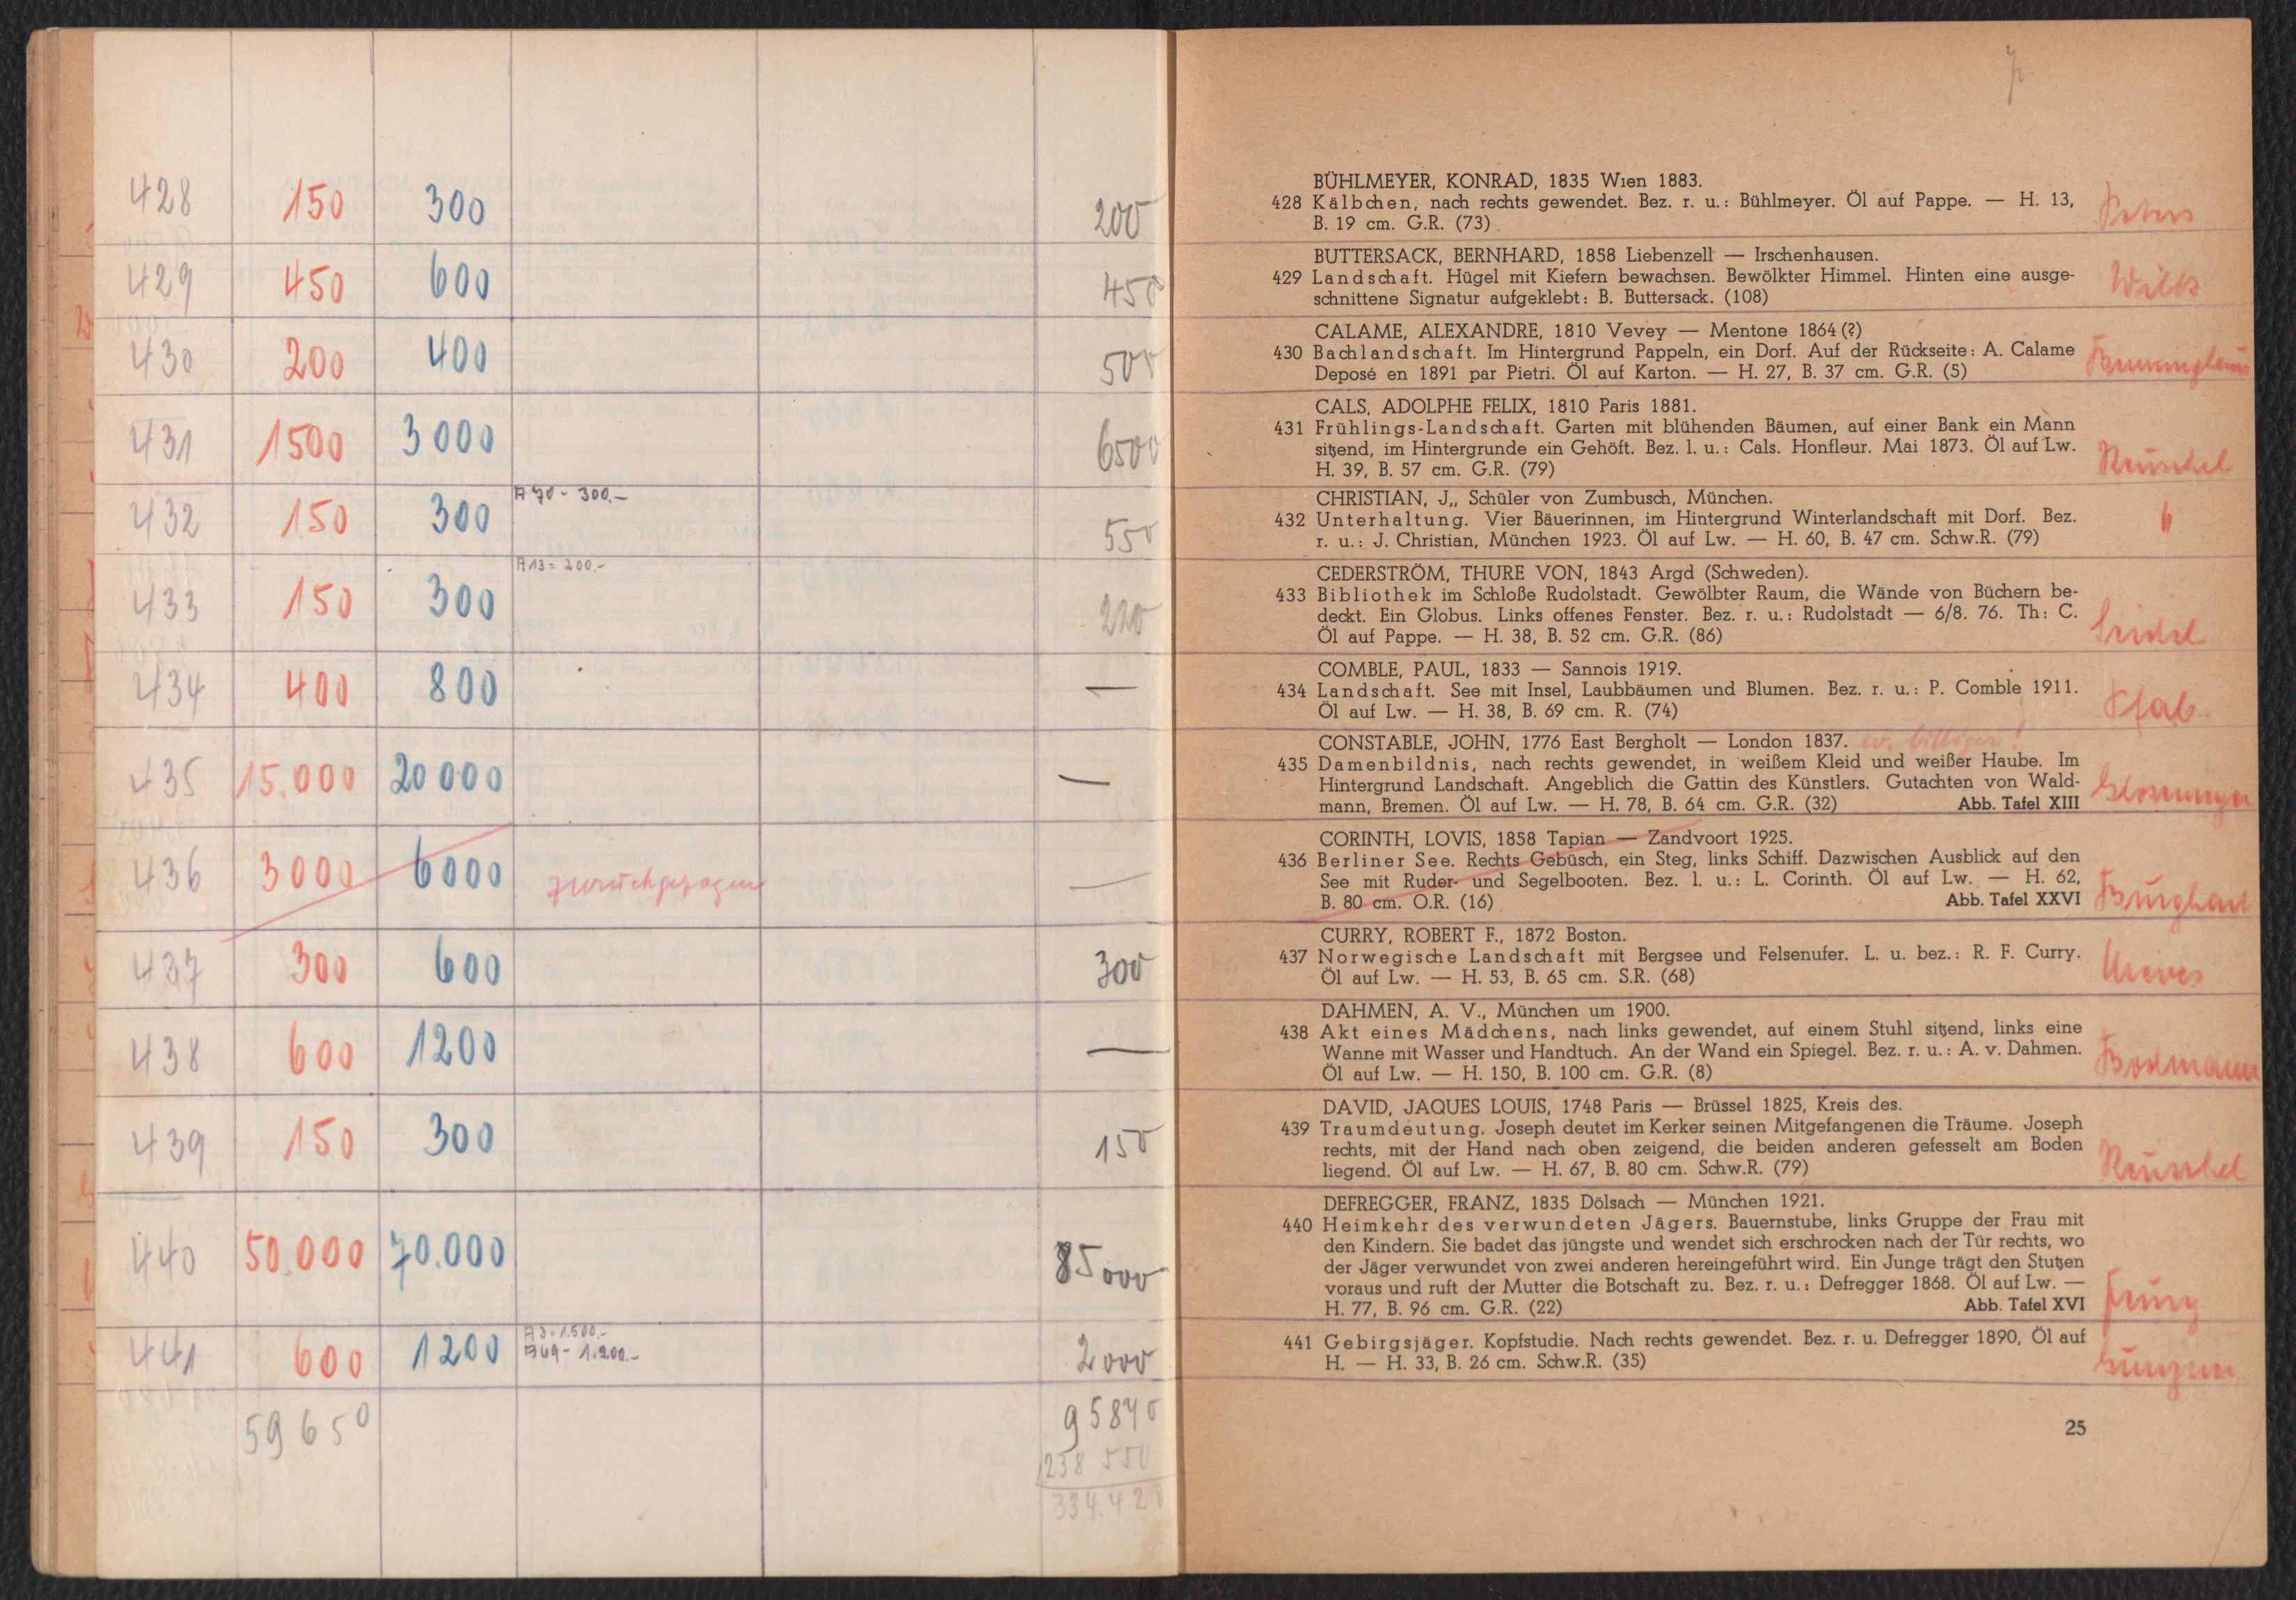 428 150 300 200
429 450 600 450
430 200 400 500
431 1500 3000 6500
432 150 300 A 70 - 300.- 550
433 150 300 A 13 = 200.- 220
434 400 800 —
435 15.000 20000 —
436 3000 6000 zurückgezogen —
437 300 600 300
438 600 1200 —
439 150 300 150
440 50.000 70.000 85000
441 600 1200 A 3 = 1.500.- 2000
A 49 - 1.200.-
59650 95870
238 550
334.420
BÜHLMEYER, KONRAD, 1835 Wien 1883.
428 Kälbchen, nach rechts gewendet. Bez. r. u.: Bühlmeyer. Öl auf Pappe. — H. 13,
B. 19 cm. G.R. (73)
BUTTERSACK, BERNHARD, 1858 Liebenzell — Irschenhausen.
429 Landschaft. Hügel mit Kiefern bewachsen. Bewölkter Himmel. Hinten eine ausge-
schnittene Signatur aufgeklebt: B. Buttersack. (108)
Wilk
CALAME, ALEXANDRE, 1810 Vevey — Mentone 1864 (?)
430 Bachlandschaft. Im Hintergrund Pappeln, ein Dorf. Auf der Rückseite: A. Calame
Deposé en 1891 par Pietri. Öl auf Karton. — H. 27, B. 37 cm. G.R. (5)
CALS, ADOLPHE FELIX, 1810 Paris 1881.
431 Frühlings-Landschaft. Garten mit blühenden Bäumen, auf einer Bank ein Mann
sitzend, im Hintergrunde ein Gehöft. Bez. l. u.: Cals. Honfleur. Mai 1873. Öl auf Lw.
H. 39, B. 57 cm. G.R. (79)
Reuschel
CHRISTIAN, J,, Schüler von Zumbusch, München.
432 Unterhaltung. Vier Bäuerinnen, im Hintergrund Winterlandschaft mit Dorf. Bez.
r. u.: J. Christian, München 1923. Öl auf Lw. — H. 60, B. 47 cm. Schw.R. (79)
CEDERSTRÖM, THURE VON, 1843 Argd (Schweden).
433 Bibliothek im Schloße Rudolstadt. Gewölbter Raum, die Wände von Büchern be-
deckt. Ein Globus. Links offenes Fenster. Bez. r. u.: Rudolstadt — 6/8. 76. Th: C.
Öl auf Pappe. — H. 38, B. 52 cm. G.R. (86)
Seidel
COMBLE, PAUL, 1833 — Sannois 1919.
434 Landschaft. See mit Insel, Laubbäumen und Blumen. Bez. r. u.: P. Comble 1911.
Öl auf Lw. — H. 38, B. 69 cm. R. (74)
Pfab
CONSTABLE, JOHN, 1776 East Bergholt — London 1837. ev. billiger!
435 Damenbildnis, nach rechts gewendet, in weißem Kleid und weißer Haube. Im
Hintergrund Landschaft. Angeblich die Gattin des Künstlers. Gutachten von Wald-
mann, Bremen. Öl auf Lw. — H. 78, B. 64 cm. G.R. (32) Abb. Tafel XIII
CORINTH, LOVIS, 1858 Tapian — Zandvoort 1925.
436 Berliner See. Rechts Gebüsch, ein Steg, links Schiff. Dazwischen Ausblick auf den
See mit Ruder- und Segelbooten. Bez. l. u.: L. Corinth. Öl auf Lw. — H. 62,
B. 80 cm. O.R. (16) Abb. Tafel XXVI
CURRY, ROBERT F., 1872 Boston.
437 Norwegische Landschaft mit Bergsee und Felsenufer. L. u. bez.: R. F. Curry.
Öl auf Lw. — H. 53, B. 65 cm. S.R. (68)
DAHMEN, A. V., München um 1900.
438 Akt eines Mädchens, nach links gewendet, auf einem Stuhl sitzend, links eine
Wanne mit Wasser und Handtuch. An der Wand ein Spiegel. Bez. r. u.: A. v. Dahmen.
Öl auf Lw. — H. 150, B. 100 cm. G.R. (8)
Bodmann
DAVID, JAQUES LOUIS, 1748 Paris — Brüssel 1825, Kreis des.
439 Traumdeutung. Joseph deutet im Kerker seinen Mitgefangenen die Träume. Joseph
rechts, mit der Hand nach oben zeigend, die beiden anderen gefesselt am Boden
liegend. Öl auf Lw. — H. 67, B. 80 cm. Schw.R. (79)
Reuschel
DEFREGGER, FRANZ, 1835 Dölsach — München 1921.
440 Heimkehr des verwundeten Jägers. Bauernstube, links Gruppe der Frau mit
den Kindern. Sie badet das jüngste und wendet sich erschrocken nach der Tür rechts, wo
der Jäger verwundet von zwei anderen hereingeführt wird. Ein Junge trägt den Stutzen
voraus und ruft der Mutter die Botschaft zu. Bez. r. u.: Defregger 1868. Öl auf Lw. —
H. 77, B. 96 cm. G.R. (22) Abb. Tafel XVI
441 Gebirgsjäger. Kopfstudie. Nach rechts gewendet. Bez. r. u. Defregger 1890, Öl auf
H. — H. 33, B. 26 cm. Schw.R. (35)
25